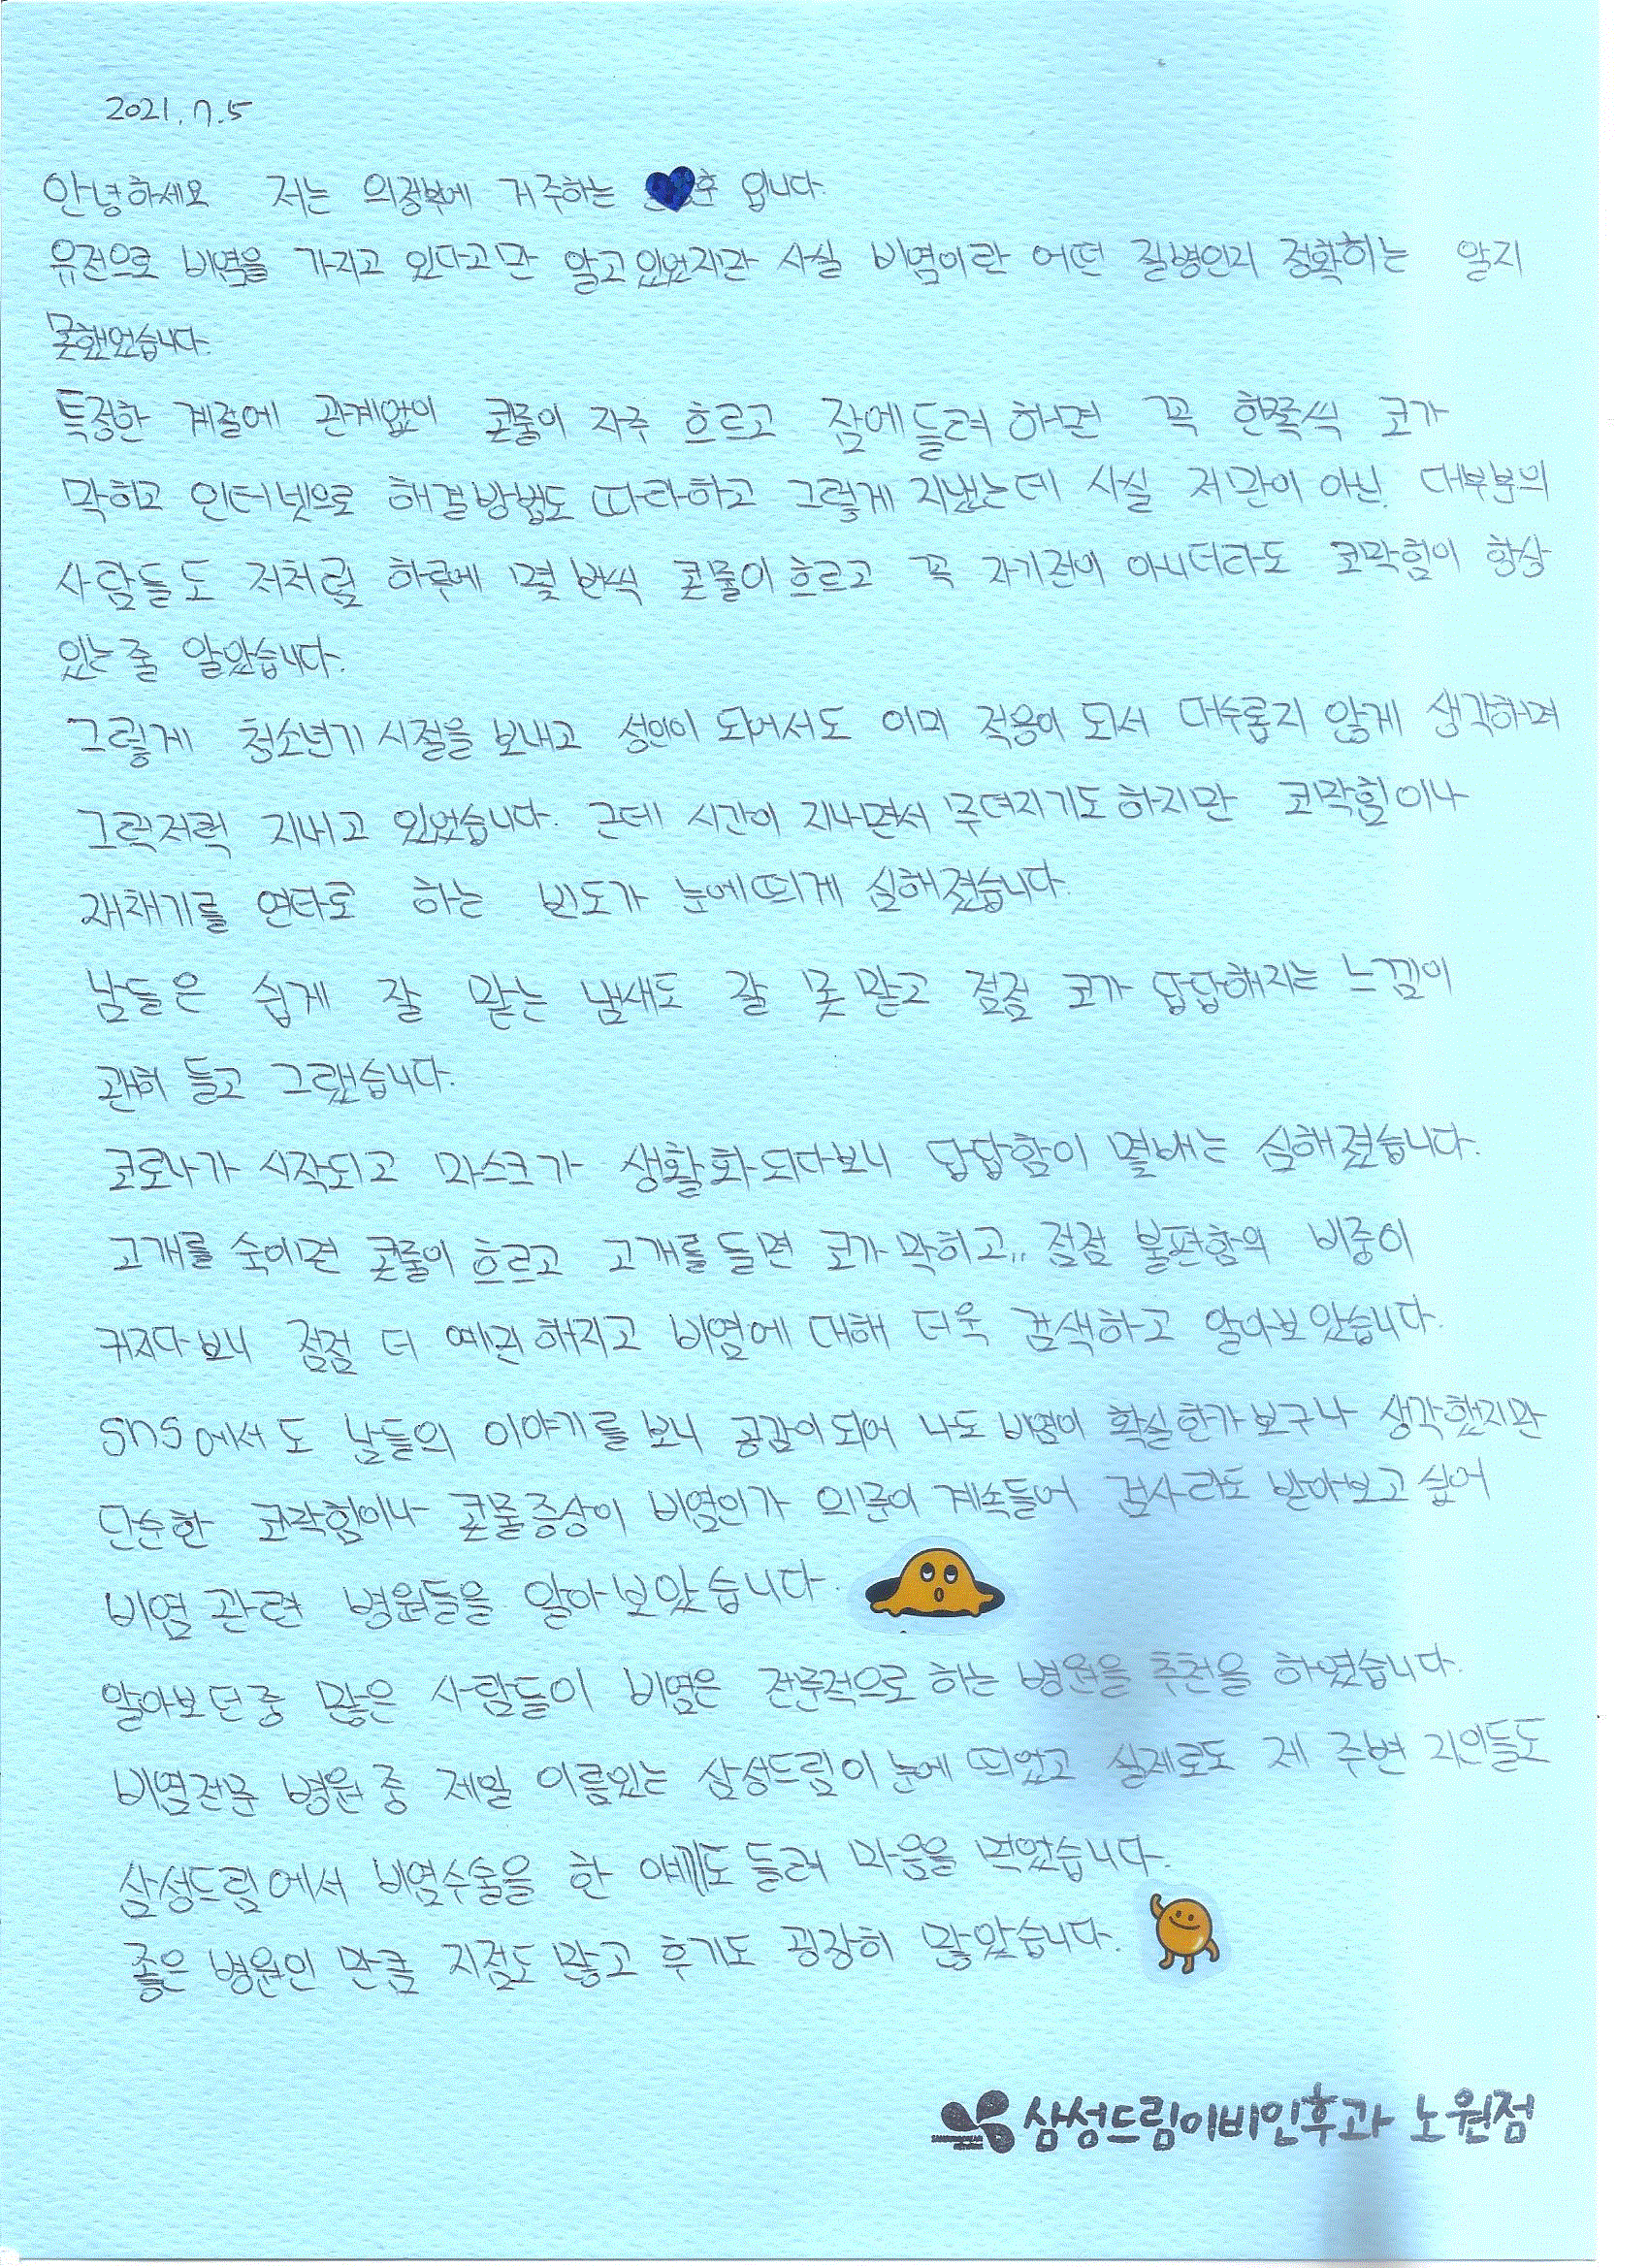 2021.7.5
안녕하세요 저는 의정부에 거주하는 훈 입니다
유전으로 비염을 가지고 있다고만 알고있었지만 사실 비염이란 어떤 질병인지 정확히는 알지
못했었습니다.
특정한 계절에 관계없이 콧물이 자주 흐르고 잠에들려 하면 꼭 한쪽씩 코가
막히고 인터넷으로 해결방법도 따라하고 그렇게 지냈는데 사실 저만이 아닌 대부분의
사람들도 저처럼 하루에 몇 번씩 콧물이 흐르고 꼭 자기전이 아니더라도 코막힘이 항상
있는줄 알았습니다.
그렇게 청소년기 시절을 보내고 성인이 되어서도 이미 적응이 되서 대수롭지 않게 생각하며
그럭저럭 지내고 있었습니다. 근데 시간이 지나면서 무뎌지기도하지만 코막힘이나
재채기를 연타로 하는 빈도가 눈에띄게 심해졌습니다.
남들은 쉽게 잘 맡는 냄새도 잘 못 맡고 점점 코가 답답해지는 느낌이
괜히 들고 그랬습니다.
코로나가 시작되고 마스크가 생활화되다보니 답답함이 몇배는 심해졌습니다.
고개를 숙이면 콧물이 흐르고 고개를 들면 코가막히고.. 점점 불편함의 비중이
커지다보니 점점 더 예민해지고 비염에 대해 더욱 검색하고 알아보았습니다.
sns에서도 남들의 이야기를 보니 공감이되어 나도 비염이 확실한가보구나 생각했지만
단순한 코막힘이나 콧물증상이 비염인가 의문이 계속들어 검사라도 받아보고싶어
비염 관련 병원들을 알아보았습니다.
알아보던중 많은 사람들이 비염은 전문적으로 하는 병원을 추천을 하였습니다.
비염전문 병원 중 제일 이름있는 삼성드림이 눈에 띄었고 실제로도 제 주변 지인들도
삼성드림에서 비염수술을 한 얘기도 들려 마음을 먹었습니다.
좋은 병원인 만큼 지점도 많고 후기도 굉장히 많았습니다.
삼성드림이비인후과 노원점